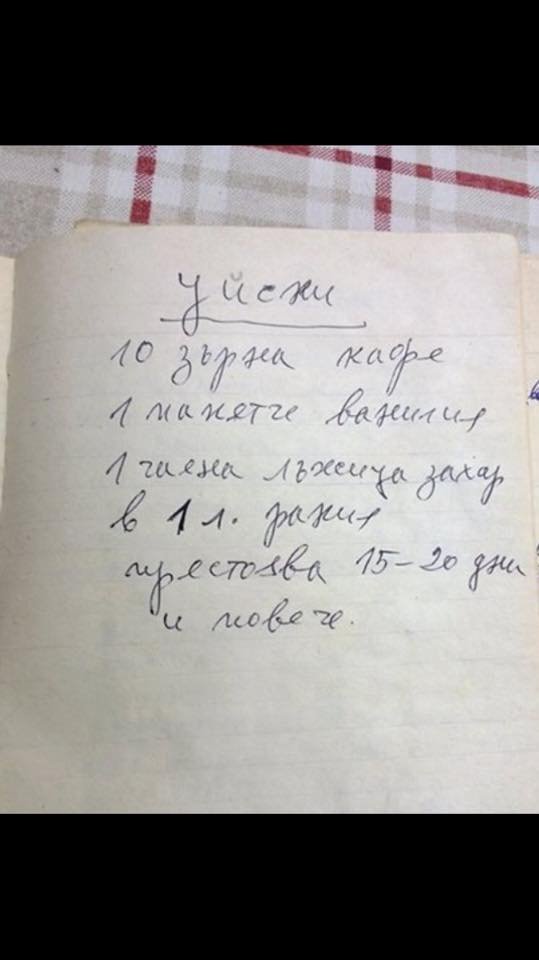 Уйски
10 зърна кафе
1 пакетче ванилия
1 чаена лъжица захар
в 1 л. ракия
престоява 15-20 дни
и повече.